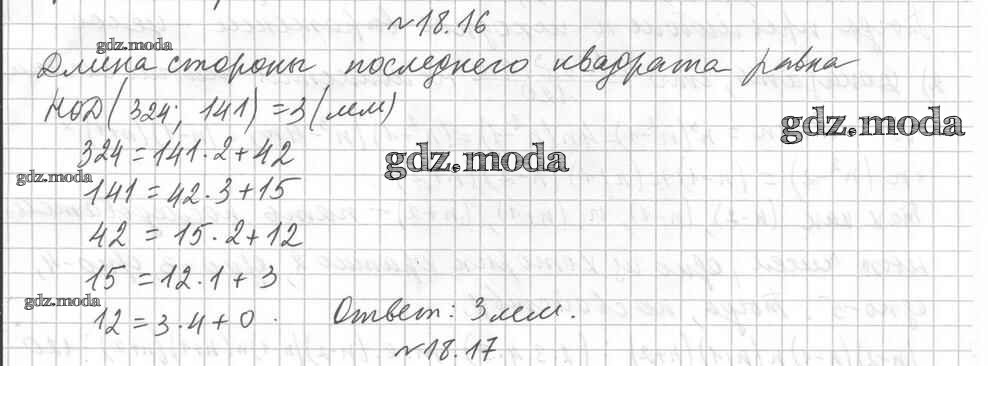 №18.16
gdz.moda
Длина стороны последнего квадрата равна
НОД(324; 141) = 3 (мм)
gdz.moda
324 = 141 · 2 + 42
gdz.moda
gdz.moda
141 = 42 · 3 + 15
42 = 15 · 2 + 12
15 = 12 · 1 + 3
gdz.moda
12 = 3 · 4 + 0. Ответ: 3 мм.
№18.17